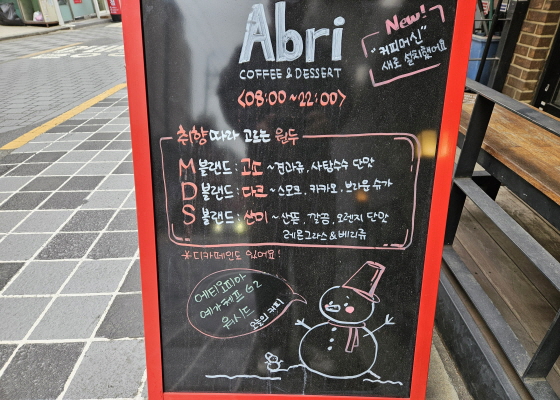 Abri
COFFEE & DESSERT
<08:00~22:00>
New!
"커피머신"
새로 설치했어요
취향따라 고르는 원두
M 블랜드 : 고소 ~ 견과류, 사탕수수 단맛
D 블랜드 : 다크 ~ 스모크, 카카오, 브라운슈가
S 블랜드 : 산미 ~ 산뜻, 깔끔, 오렌지 단맛
레몬그라스&베리류
*디카페인도 있어요!
에티오피아
예가체프 G2
워시드
오늘의 커피